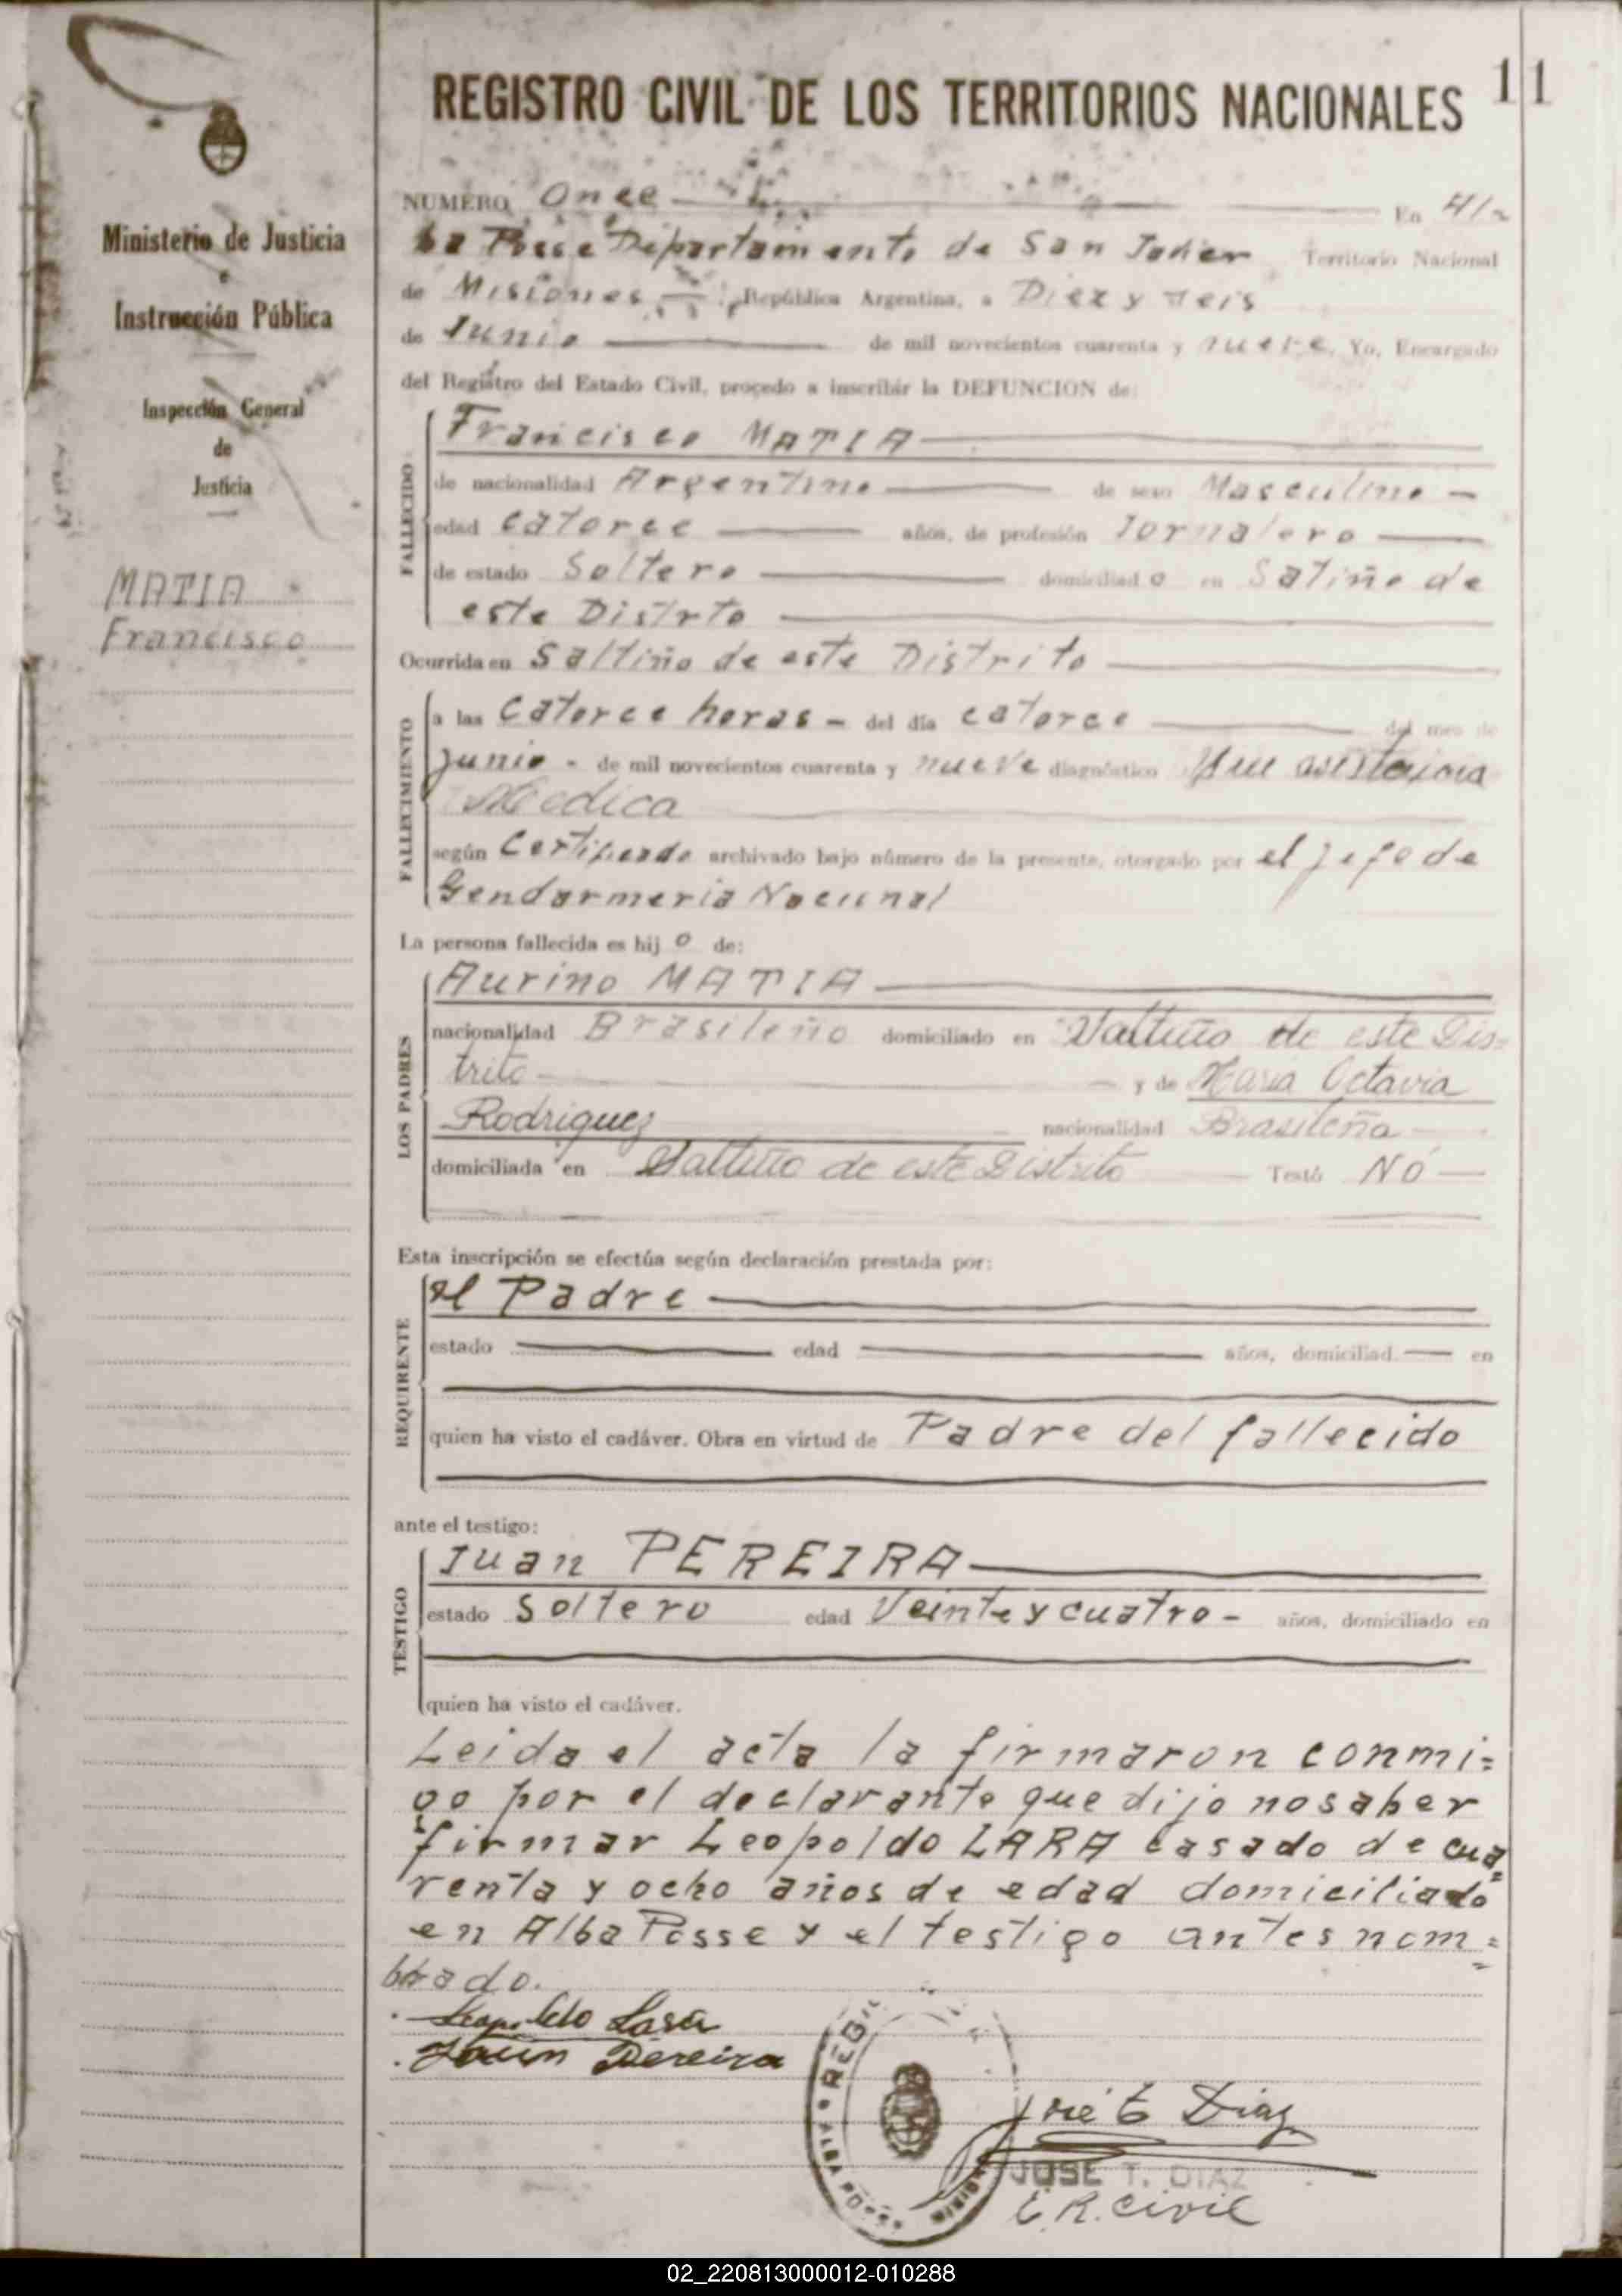 REGISTRO CIVIL DE LOS TERRITORIOS NACIONALES 11
Ministerio de Justicia
e
Instrucción Pública
Inspección General
de
Justicia
MATIA
Francisco
NUMERO Once En Al
ba Posse Departamento de San Javier Territorio Nacional
de Misiones República Argentina, a Diez y seis
de Junio de mil novecientos cuarenta y nueve, Yo, Encargado
del Registro del Estado Civil, procedo a inscribir la DEFUNCION de:
FALLECIDO
Francisco MATIA
de nacionalidad Argentino de sexo Masculino
edad catorce años, de profesión Jornalero
de estado Soltero domiciliado en Satiño de
este Distrto
Ocurrida en Saltiño de este Distrito
FALLECIMIENTO
a las catorce horas - del día catorce del mes de
junio - de mil novecientos cuarenta y nueve diagnóstico asistencia
Medica
según Certificado archivado bajo número de la presente, otorgado por el jefe de
Gendarmeria Nacional
La persona fallecida es hijo de:
LOS PADRES
Aurino MATIA
nacionalidad Brasileño domiciliado en Saltiño de este Dis=
trito y de Maria Octavia
Rodriguez nacionalidad Brasileña
domiciliada en Saltiño de este Distrito Testó NÓ
Esta inscripción se efectúa según declaración prestada por:
REQUIRENTE
el Padre
estado edad años, domiciliad en
quien ha visto el cadáver. Obra en virtud de Padre del fallecido
ante el testigo:
TESTIGO
Juan PEREIRA
estado Soltero edad Veinte y cuatro - años, domiciliado en
quien ha visto el cadáver.
Leida el acta la firmaron conmi=
go por el declarante que dijo no saber
firmar Leopoldo LARA casado de cua=
renta y ocho años de edad domiciliado
en Alba Posse y el testigo antes nom=
brado.
Leopoldo Lara
Juan Pereira
REGI
ALBA POSSE
José T Diaz
JOSE T. DIAZ
E.R. Civil
02_220813000012-010288